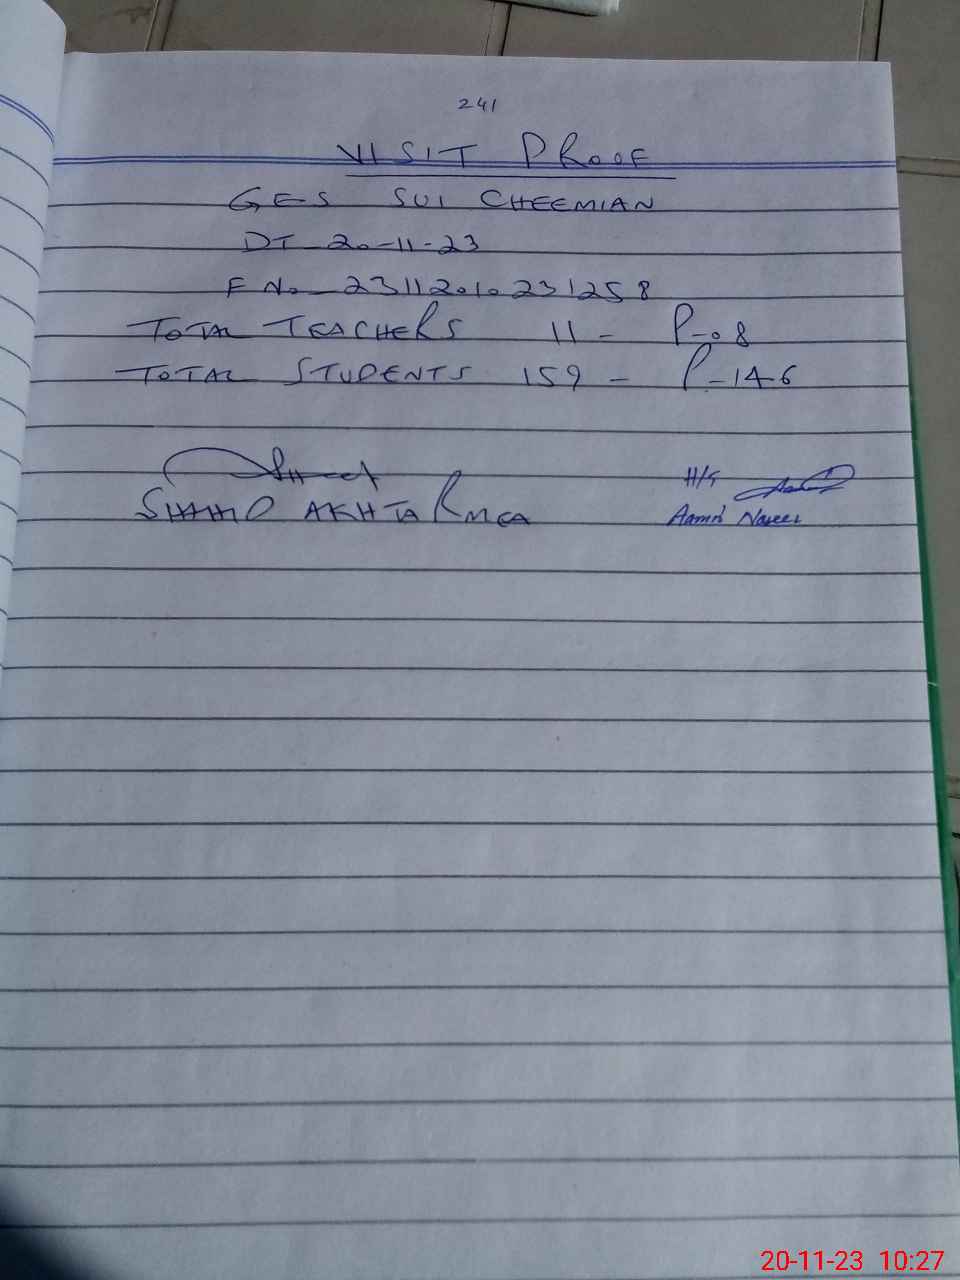 241
VISIT PROOF
GES SUI CHEEMIAN
DT-20-11-23
F No-23112010231258
TOTAL TEACHERS 11- P-08
TOTAL STUDENTS 159- P-146
H/T
AKHTAR MEA
Aamir Naseer
20-11-23 10:27